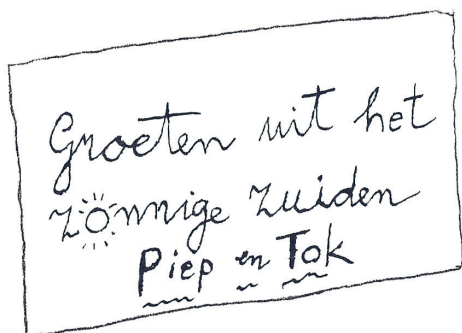 Groeten uit het
zonnige zuiden
Piep en Tok